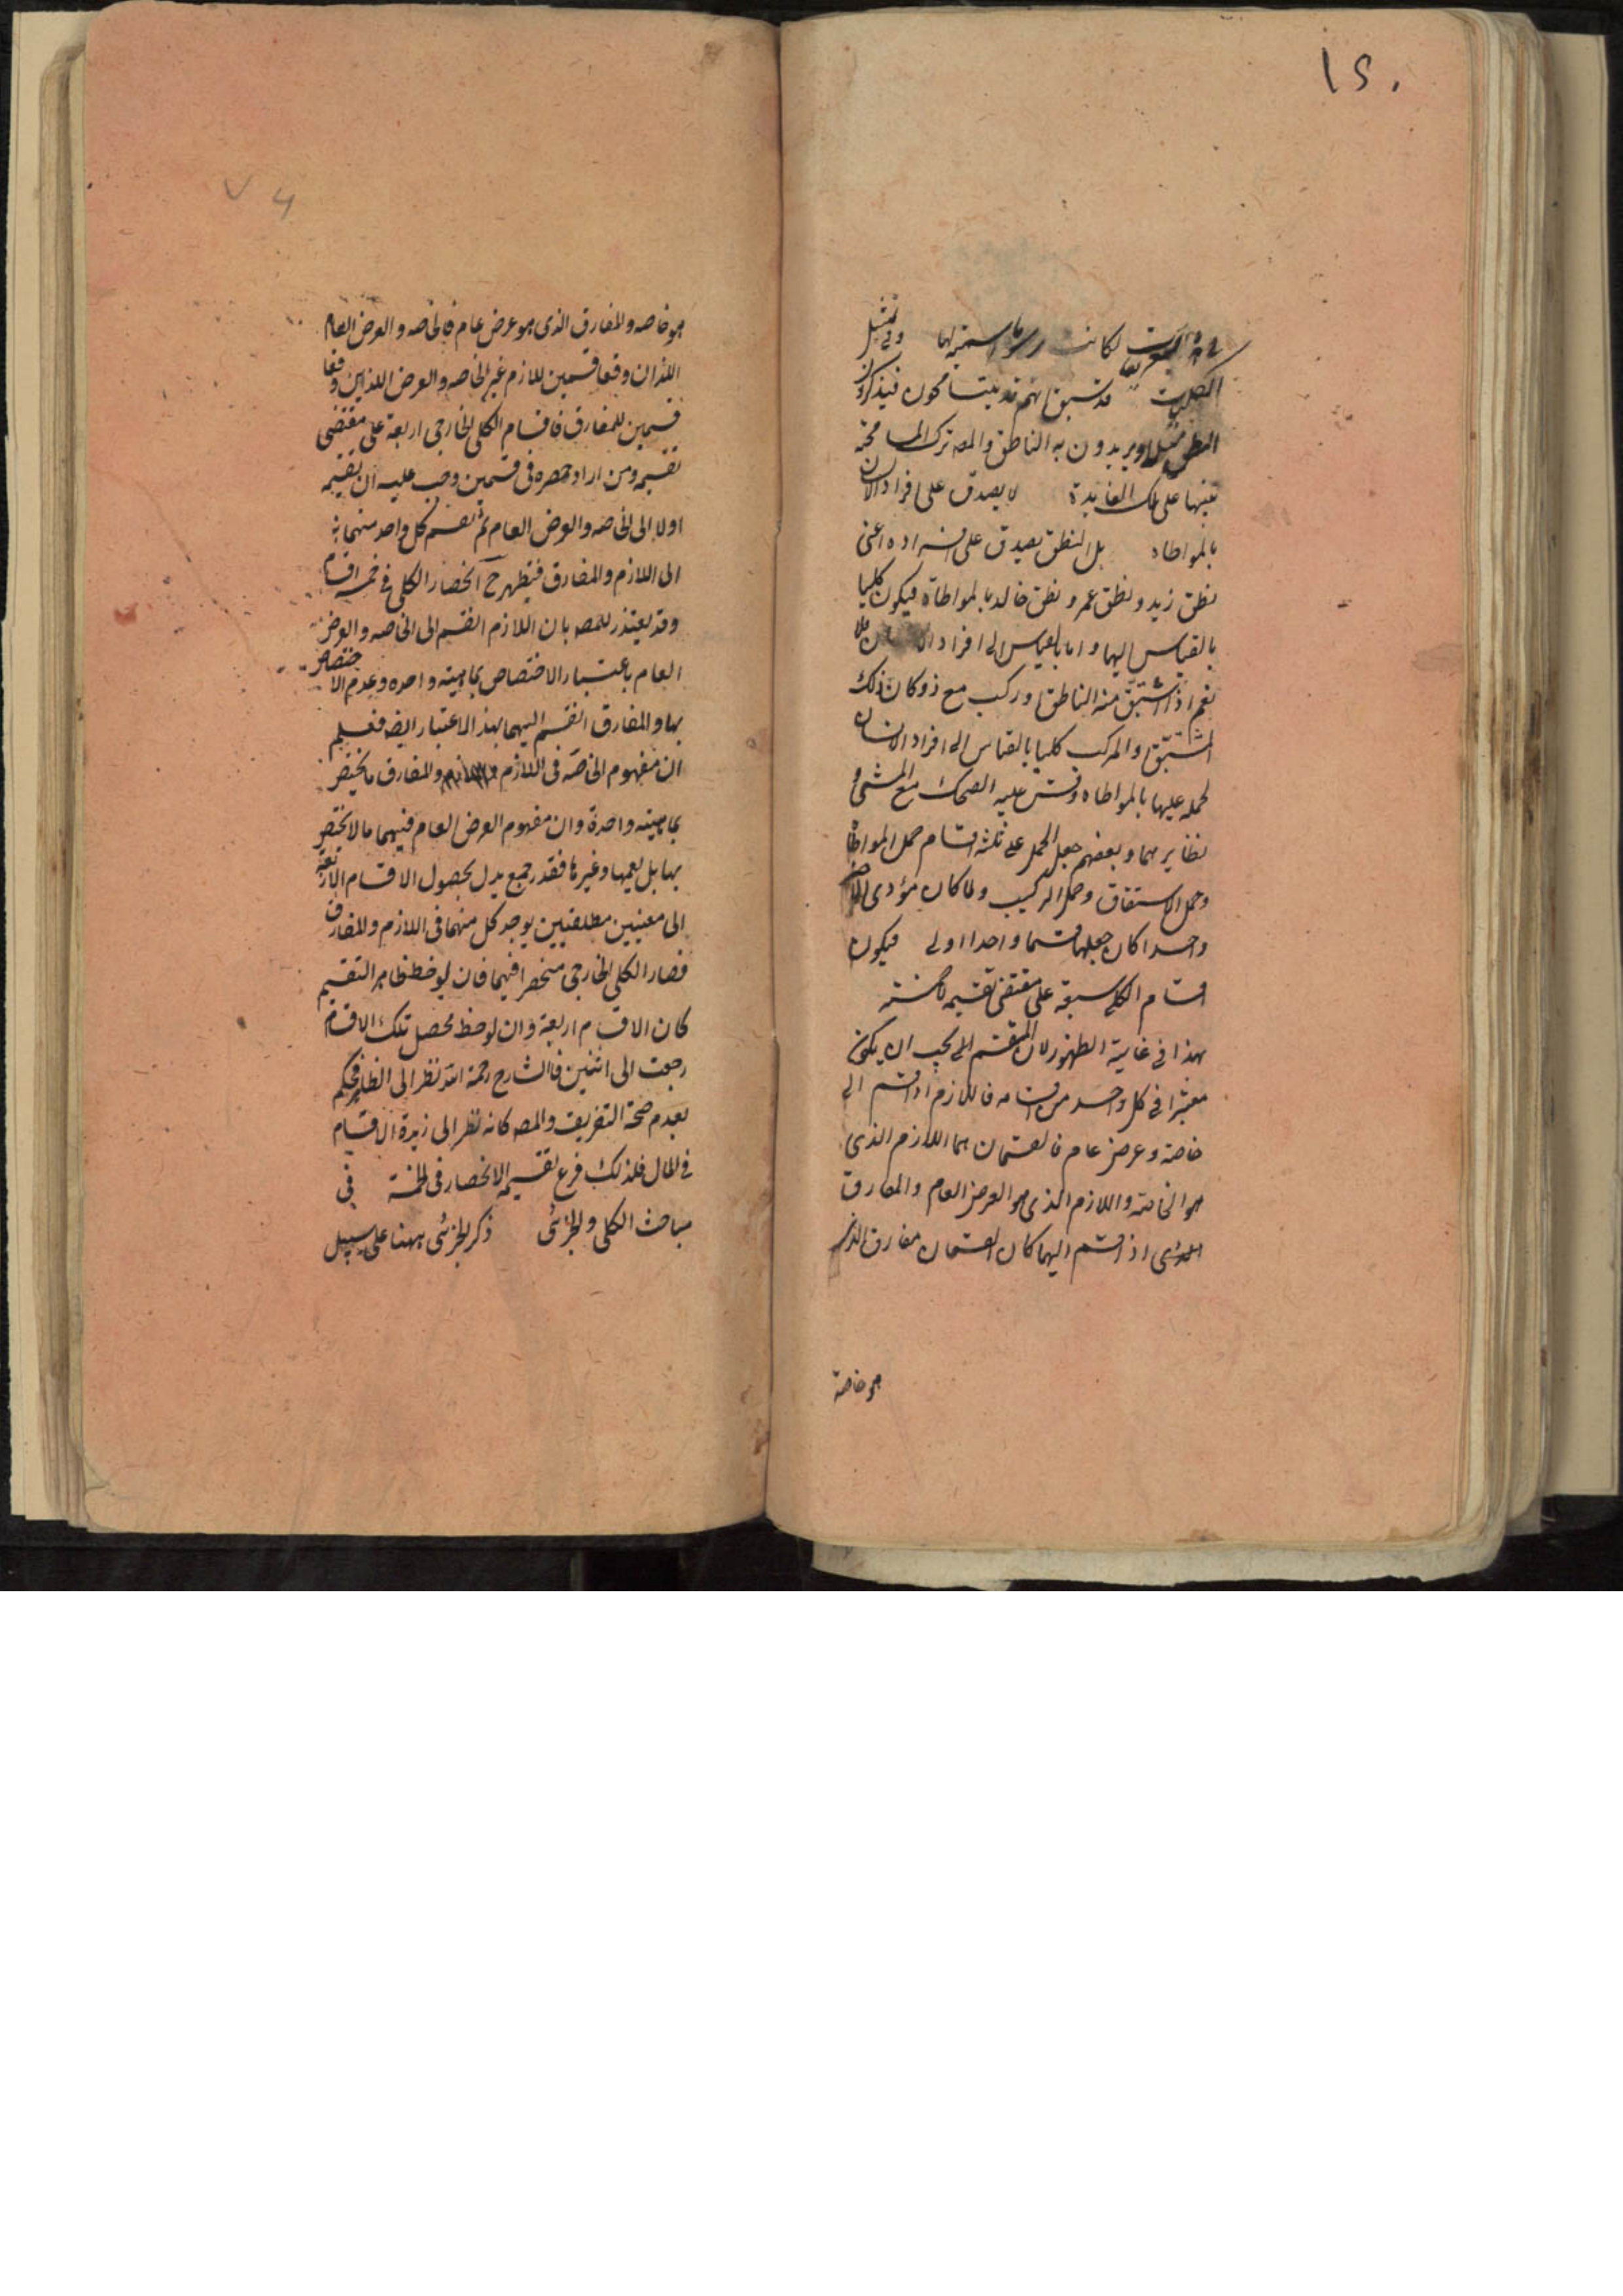 ١٢٠
لكانت رسوما اسمية لها وفي تمثيل
الكليات قد سبق انهم قد يتسامحون فيذكرون
النطق مثلا ويريدون به الناطق والمص ترك المسامحة
تنبيها على تلك الفايدة لا يصدق على افراد الانسان
بالمواطاه بل النطق يصدق على افراده اعنى
نطق زيد ونطق عمرو ونطق خالد بالمواطاة فيكون كليا
بالقياس اليها واما بالقياس الى افراد الانسان فلا
نعم اذا اشتق منه الناطق او ركب مع ذو كان ذلك
المشتق والمركب كليا بالقياس الى افراد الانسان
لحمله عليها بالمواطاه وقس عليه الضحك مع المشى و
نظايرهما وبعضهم جعل الحمل على ثلثة اقسام حمل المواطاة
وحمل الاشتقاق وحمل التركيب ولما كان مؤدى الاخيرين
واحدا كان جعلهما قسما واحدا اولى فيكون
اقسام الكلى سبعة على مقتضى تقسيمه لا خمسة
هذا فى غاية الظهور لان المقسم يجب ان يكون
معتبرا فى كل واحد من اقسامه فاللازم اذا قسم الى
خاصة وعرض عام فالقسمان هما اللازم الذى
هو الخاصة واللازم الذى هو العرض العام والمفارق
اذا قسم اليهما كان القسمان مفارق الذى
هو خاصة
٧٤
هو خاصه والمفارق الذى هو عرض عام فالخاصه والعرض العام
اللذان وقعا قسمين للازم غير الخاصه والعرض اللذين وقعا
قسمين للمفارق فاقسام الكلى الخارجى اربعة على مقتضى
تقسيمه ومن اراد حصره فى قسمين وجب عليه ان يقسمه
اولا الى الخاصه والعرض العام ثم يقسم كل واحد منهما
الى اللازم والمفارق فيظهر ح انحصار الكلى فى خمسه اقسام
وقد يعتذر للمص بان اللازم انقسم الى الخاصه والعرض
العام باعتبار الاختصاص بماهيته واحده وعدم الاختصاص
بها والمفارق انقسم اليهما بهذا الاعتبار ايضا فعلم
ان مفهوم الخاصة فى اللازم والمفارق ما يختص
بماهيته واحدة وان مفهوم العرض العام فيهما ما لا يختص
بها بل يعمها وغيرها فقد رجع بدل بحصول الاقسام الاربعة
الى معنيين مطلقين يوجد كل منهما فى اللازم والمفارق
فصار الكلى الخارجى منحصرا فيهما فان لوحظ ظاهر التقسيم
كان الاقسام اربعة وان لوحظ محصل تلك الاقسام
رجعت الى اثنين فالشارح رحمة الله نظر الى الظاهر فحكم
بعدم صحة التفريع والمص كانه نظر الى زبدة الاقسام
فى المال فلذلك فرع تقسيمه الانحصار فى الخمسة فى
مباحث الكلى والجزئى ذكر الجزئى ههنا على سبيل